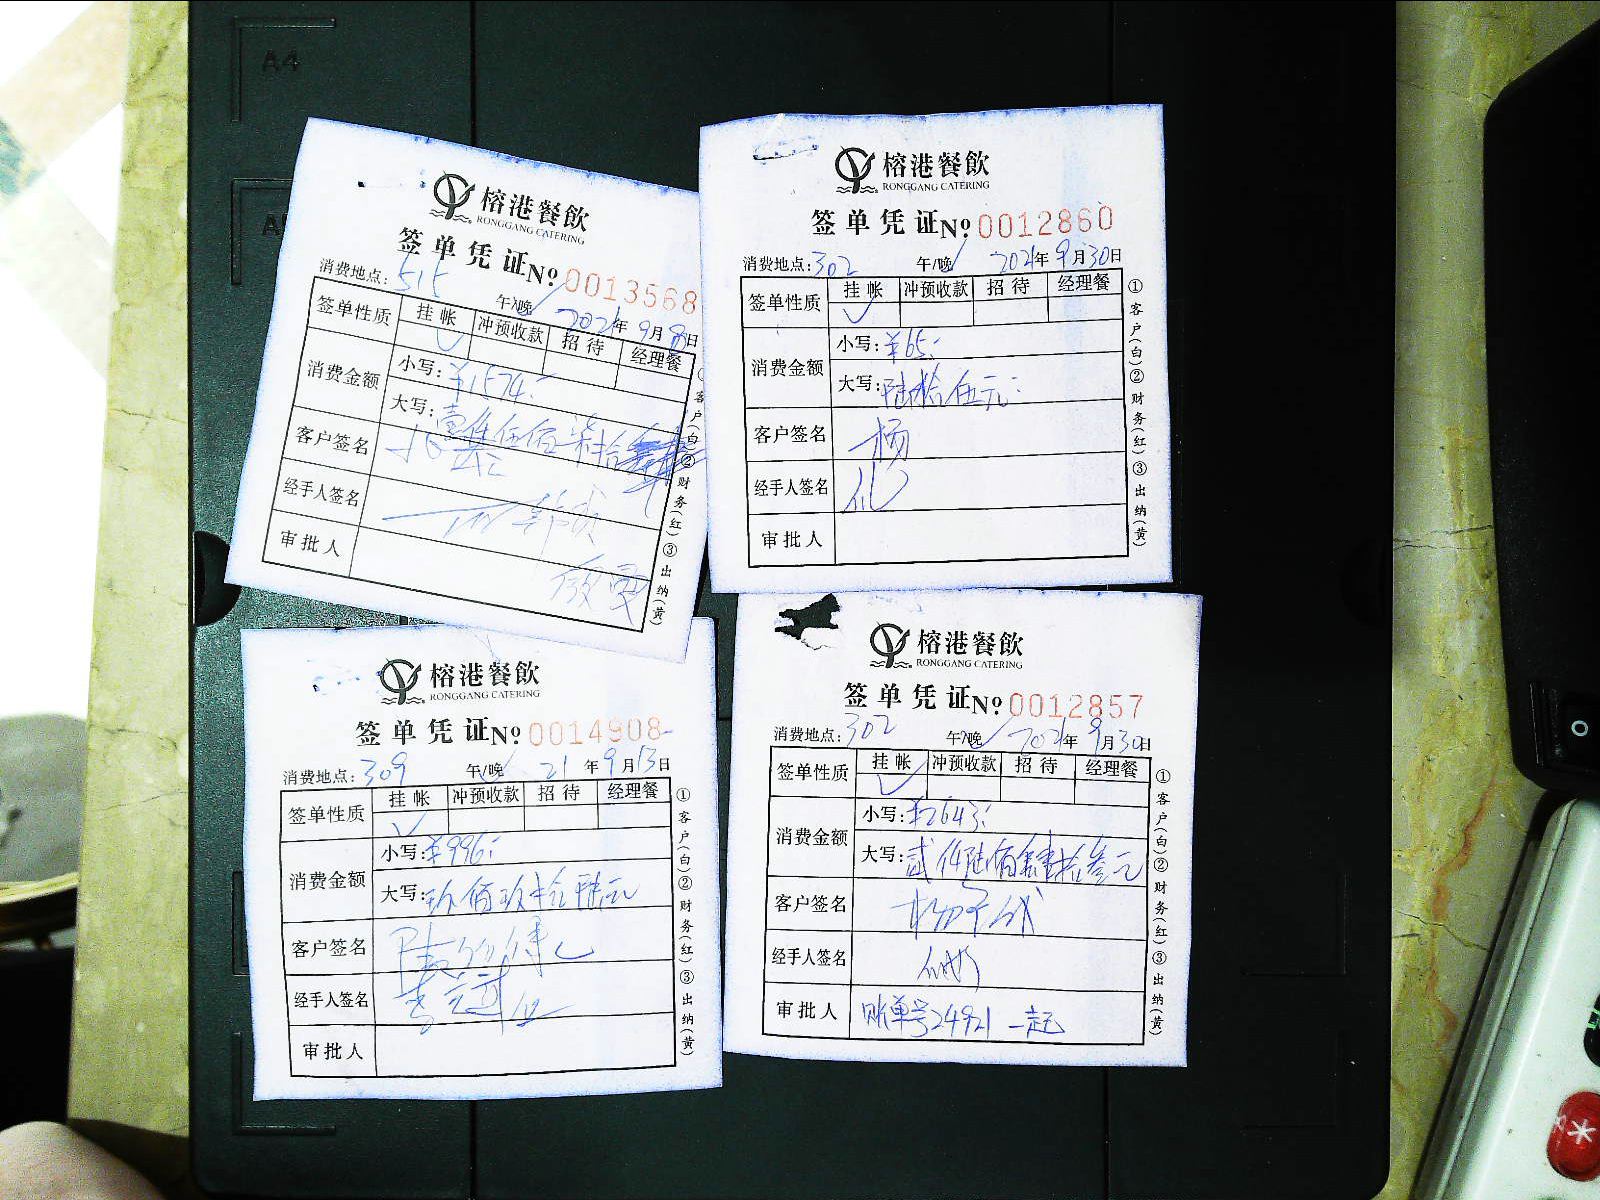 A4
榕港餐飲
RONGGANG CATERING
签单凭证№ 0013568
消费地点:515 午/晚 2021年9月8日
签单性质 挂帐 冲预收款 招待 经理餐
消费金额
小写:¥1574:
大写:壹仟伍佰柒拾
客户签名
经手人签名
审批人
①客户(白)②财务(红)③出纳(黄)
榕港餐飲
RONGGANG CATERING
签单凭证№ 0012860
消费地点:302 午/晚 2021年9月30日
签单性质 挂帐 冲预收款 招待 经理餐
消费金额
小写:¥65:
大写:陆拾伍元:
客户签名 杨
经手人签名
审批人
①客户(白)②财务(红)③出纳(黄)
榕港餐飲
RONGGANG CATERING
签单凭证№ 0014908
消费地点:309 午/晚 21年9月13日
签单性质 挂帐 冲预收款 招待 经理餐
消费金额
小写:¥996:
大写:玖佰玖拾陆元
客户签名
经手人签名
审批人
①客户(白)②财务(红)③出纳(黄)
榕港餐飲
RONGGANG CATERING
签单凭证№ 0012857
消费地点:302 午/晚 2021年9月30日
签单性质 挂帐 冲预收款 招待 经理餐
消费金额
小写:¥2643:
大写:贰仟陆佰肆拾叁元
客户签名
经手人签名
审批人 账单号24921一起
①客户(白)②财务(红)③出纳(黄)